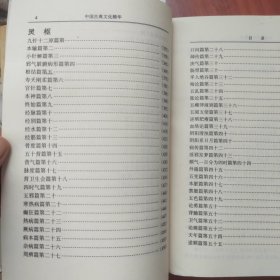 4 中国古典文化精华
灵枢
九针十二原篇第一
本输篇第二
小针解篇第三
邪气脏腑病形篇第四
根结篇第五
寿夭刚柔篇第六
官针篇第七
本神篇第八
终始篇第九
经脉篇第十
经别篇第十一
经水篇第十二
经筋篇第十三
骨度篇第十四
五十营篇第十五
营气篇第十六
脉度篇第十七
营卫生会篇第十八
四时气篇第十九
五邪篇第二十
寒热病篇第二十一
癫狂篇第二十二
热病篇第二十三
厥病篇第二十四
病本篇第二十五
杂病篇第二十六
周痹篇第二十七
目录
口问篇第二十八
师传篇第二十九
决气篇第三十
肠胃篇第三十一
平人绝谷篇第三十二
海论篇第三十三
五乱篇第三十四
胀论篇第三十五
五癃津液别篇第三十六
五阅五使篇第三十七
逆顺肥瘦篇第三十八
血络论篇第三十九
阴阳清浊篇第四十
阴阳系日月篇第四十一
病传篇第四十二
淫邪发梦篇第四十三
顺气一日分为四时篇第四十四
外揣篇第四十五
五变篇第四十六
本脏篇第四十七
禁服篇第四十八
五色篇第四十九
论勇篇第五十
背腧篇第五十一
卫气篇第五十二
论痛篇第五十三
天年篇第五十四
逆顺篇第五十五